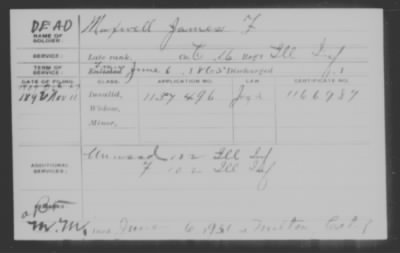 DEAD Maxwell James F
NAME OF SOLDIER:
SERVICE: Late rank, Co. 16 Reg't Ill Inf
TERM OF SERVICE: Enlisted June 6, 1865 Discharged
DATE OF FILING. CLASS. APPLICATION NO. LAW. CERTIFICATE NO.
Nov 11 Invalid, 1157496 1166987
Widow,
Minor,
ADDITIONAL SERVICES: Unassd 102 Ill Inf
F 102 Ill Inf
M.M. June 6 Milton